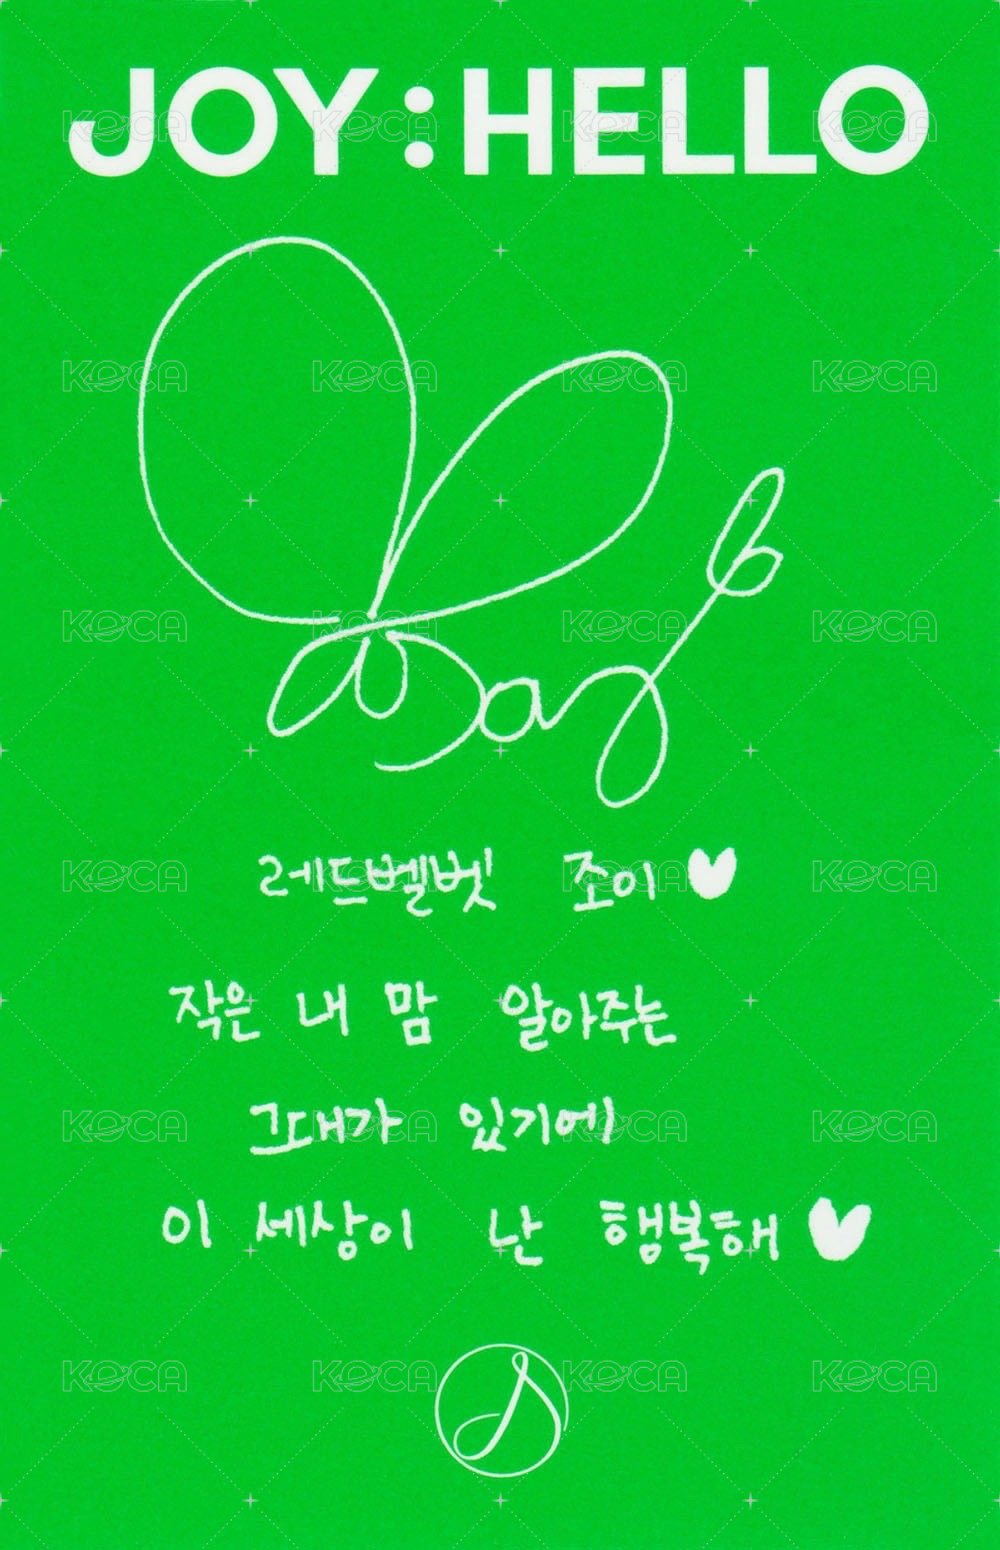 JOY:HELLO
레드벨벳 조이♥
작은 내 맘 알아주는
그대가 있기에
이 세상이 난 행복해♥
KOCA